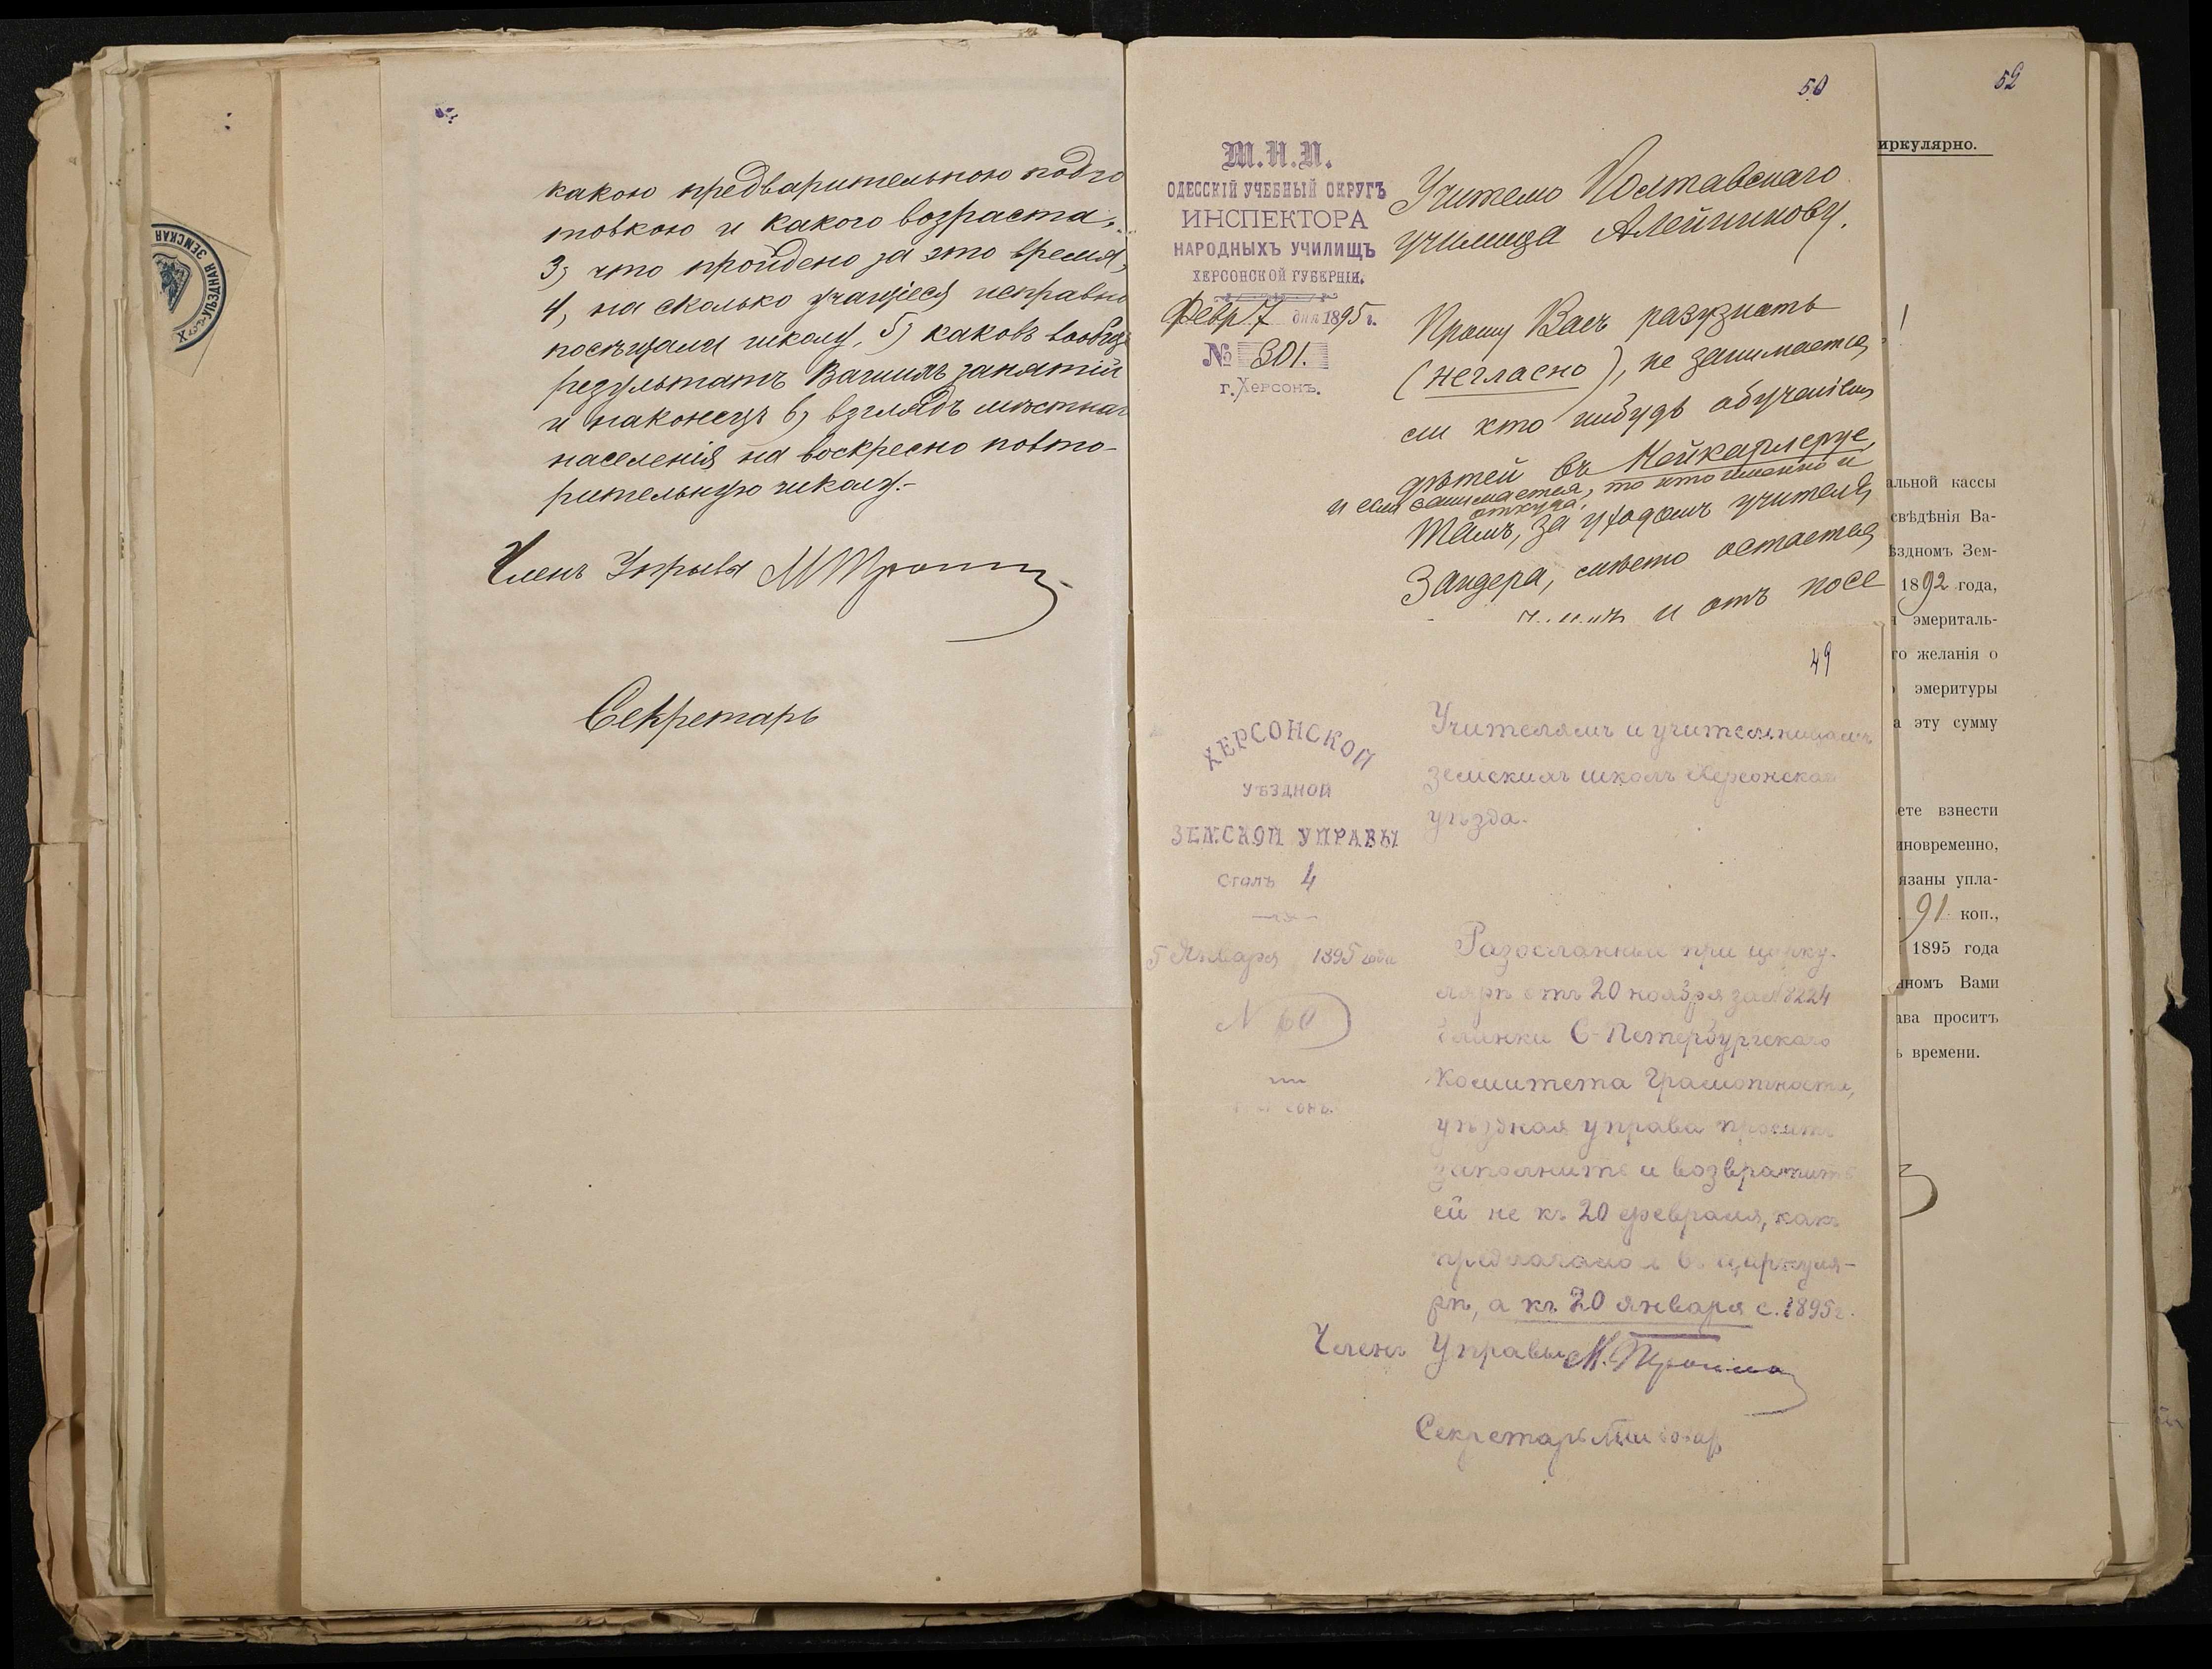 какою предварительною подго
товкою и какого возраста,
3) что пройдено за это время,
4, на сколько учащіеся исправно
посѣщали школу, 5) каковъ вообще
результатъ Вашихъ занятій
и наконецъ 6) взглядъ мѣстнаг
населенія на воскресно повто-
рительную школу.-
Членъ Управы
Секретарь
УѢЗДНАЯ ЗЕМСКАЯ
50
М.Н.П.
ОДЕССКІЙ УЧЕБНЫЙ ОКРУГЪ
ИНСПЕКТОРА
НАРОДНЫХЪ УЧИЛИЩЪ
ХЕРСОНСКОЙ ГУБЕРНІИ.
Февр 7 дня 1895 г.
№ 301.
г. Херсонъ.
Учителю Полтавскаго
училища Алейникову.
Прошу Васъ разузнать
(негласно), не занимается
ли кто нибудь обученіемъ
дѣтей въ Нейкарлсруе,
и если занимается, то кто именно и
откуда.
Тамъ, за уходомъ учителя
Зандера, мѣсто остается
и отъ посе
49
ХЕРСОНСКОЙ
УѢЗДНОЙ
ЗЕМСКОЙ УПРАВЫ
Столъ 4
5 Января 1895 года
N 60
Учителямъ и учительницамъ
земскихъ школъ Херсонскаго
уѣзда.
Разосланные при цирку-
лярѣ отъ 20 ноября за N 8224
бланки С-Петербургскаго
Комитета Грамотности,
уѣздная управа проситъ
заполнить и возвратить
ей не къ 20 февраля, какъ
предлагалось въ циркуля-
рѣ, а къ 20 января с. 1895 г.
Членъ Управы
Секретарь
52
иркулярно.
альной кассы
свѣдѣнія Ва-
ѣздномъ Зем-
1892 года,
эмериталь-
го желанія о
эмеритуры
а эту сумму
ете взнести
иновременно,
язаны упла-
91 коп.,
1895 года
нномъ Вами
ава проситъ
ь времени.